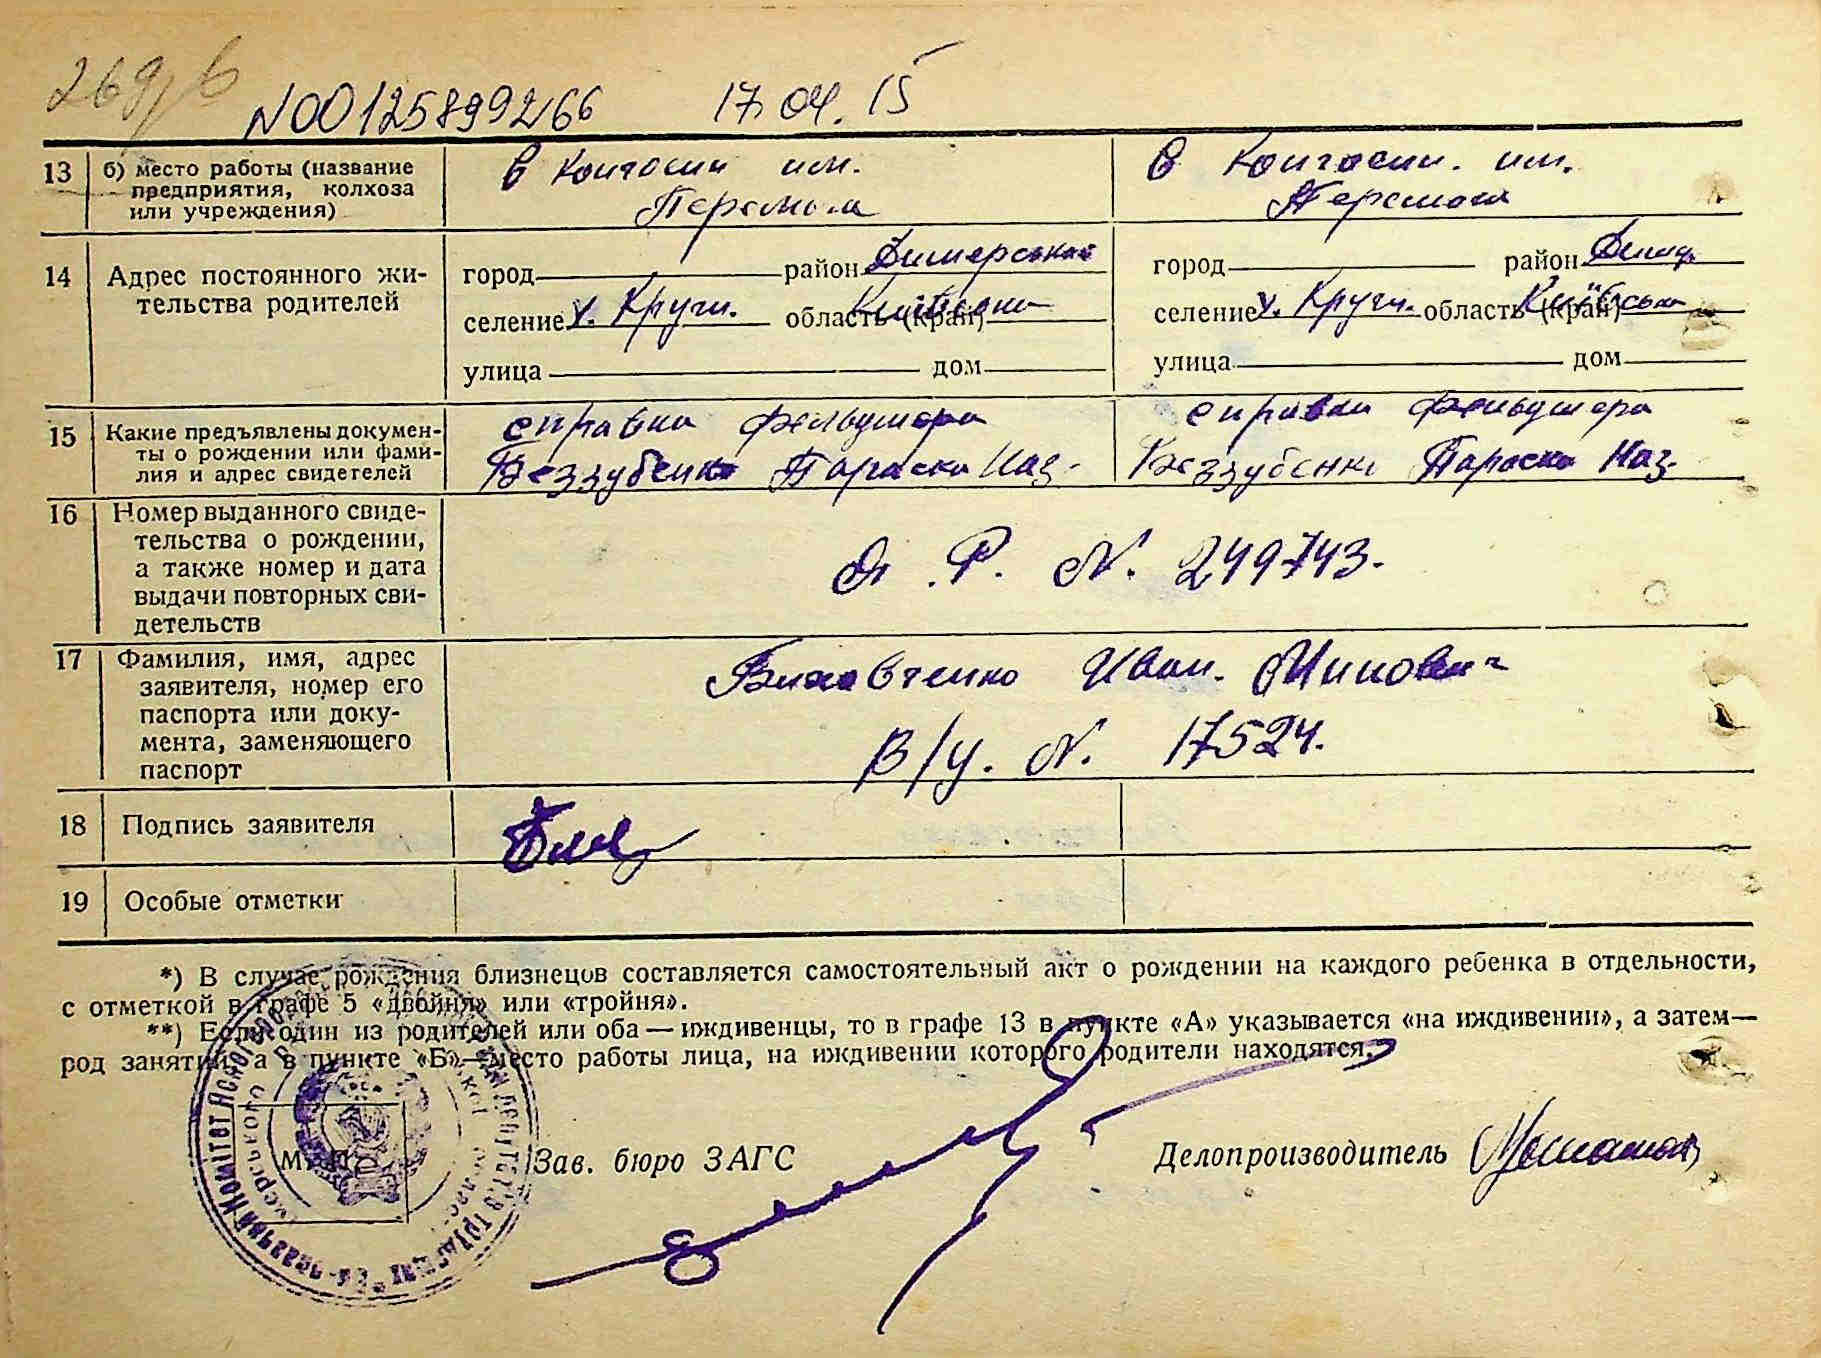 N00125899266 17.04.15
13 б) место работы (название предприятия, колхоза или учреждения)
в колгоспи им. Перемога
в колгоспи. им. Перемога
14 Адрес постоянного жительства родителей
город район Димерський
селение х. Кругл. область (край) Київська
улица дом
город район Димер.
селение х. Кругл. область (край) Київська
улица дом
15 Какие предъявлены документы о рождении или фамилия и адрес свидетелей
справка фельдшера
Беззубенко Параска Наз.
справка фельдшера
Беззубенко Параска Наз.
16 Номер выданного свидетельства о рождении, а также номер и дата выдачи повторных свидетельств
Р. N. 249743.
17 Фамилия, имя, адрес заявителя, номер его паспорта или документа, заменяющего паспорт
Иван.
В/у. N. 17524.
18 Подпись заявителя
19 Особые отметки
*) В случае рождения близнецов составляется самостоятельный акт о рождении на каждого ребенка в отдельности,
с отметкой в графе 5 «двойня» или «тройня».
**) Если один из родителей или оба — иждивенцы, то в графе 13 в пункте «А» указывается «на иждивении», а затем—
род занятий, а в пункте «Б»—место работы лица, на иждивении которого родители находятся.
М. П.
Зав. бюро ЗАГС
Делопроизводитель